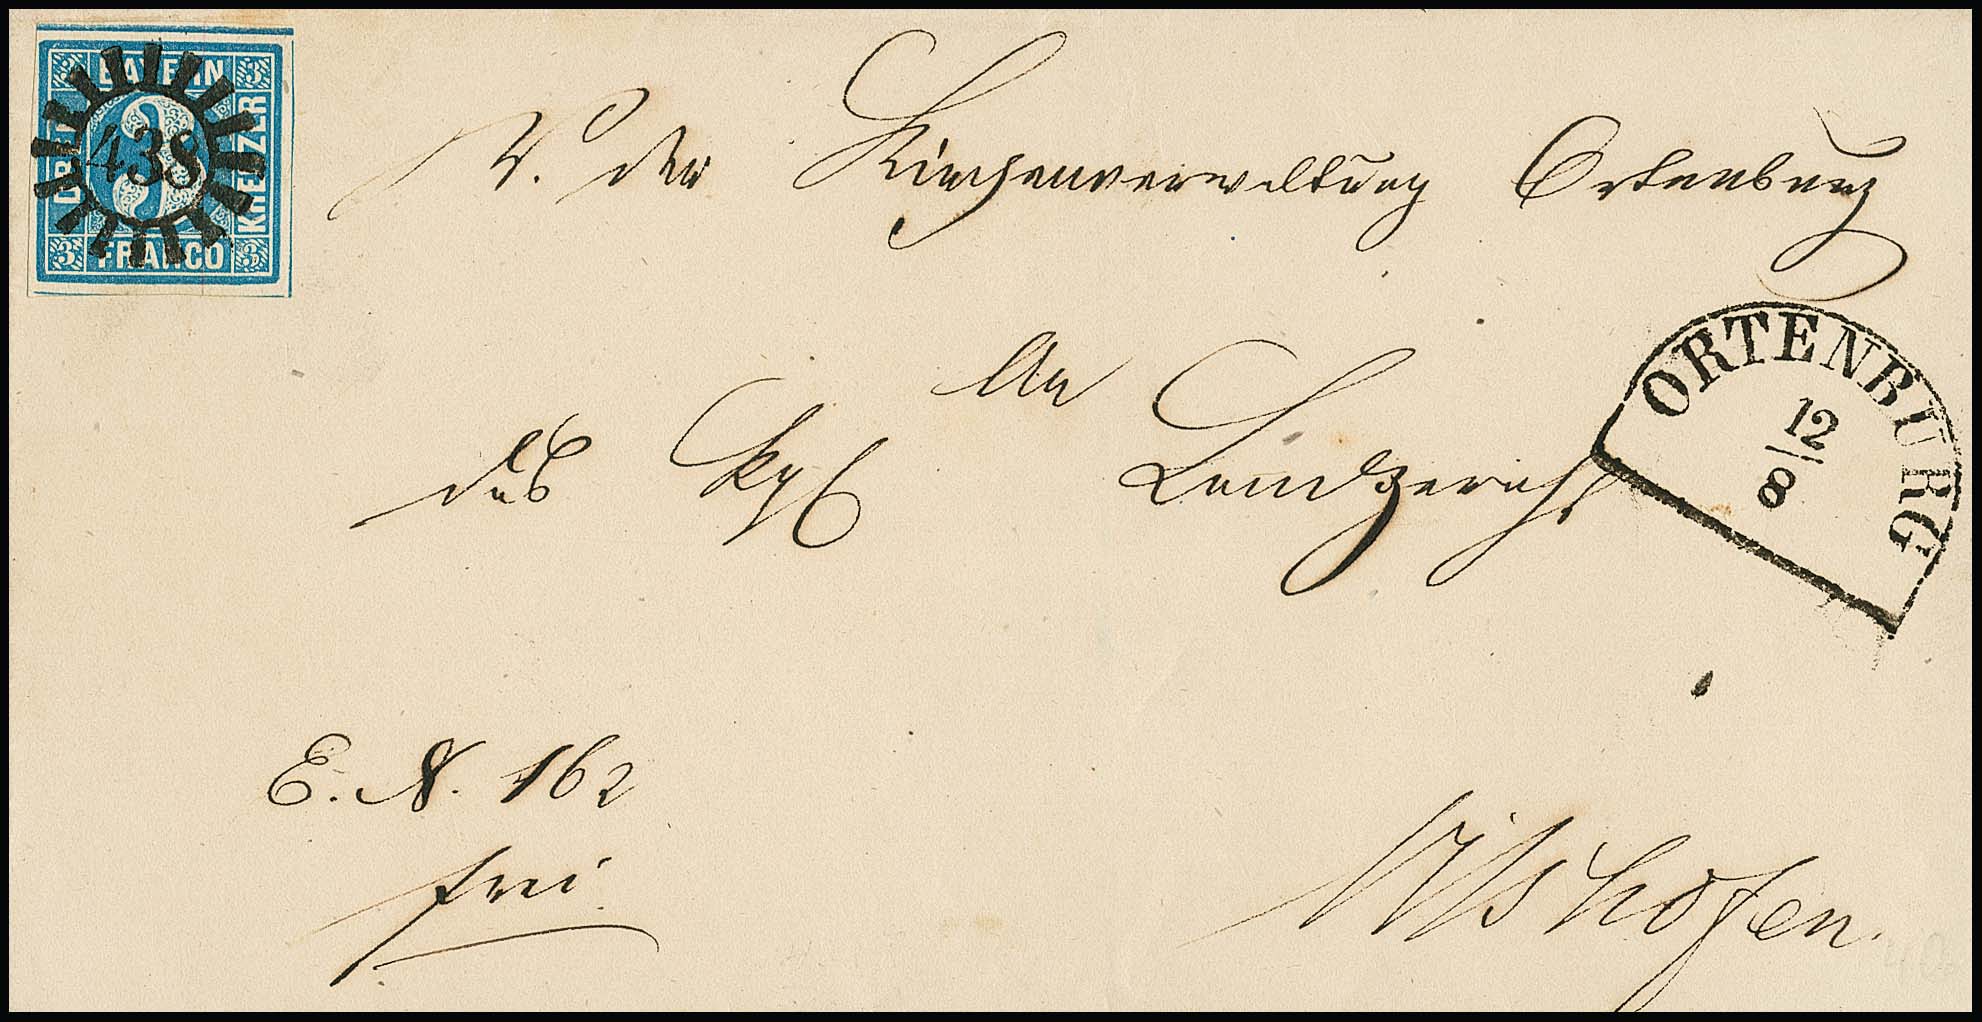 3 BAYERN 3
DREI 438 KREUZER
3 FRANCO 3
V. der Kirchenverwaltung Ortenburg
ORTENBURG
12
8
An
das Kgl Landgericht
E. N. 162
frei
Vilshofen.